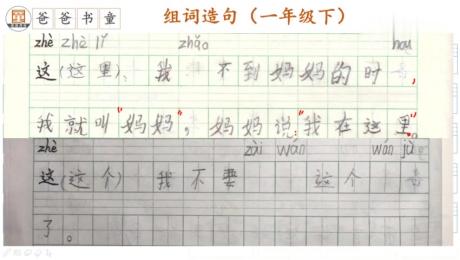 爸爸书童 组词造句（一年级下）
zhè zhè lǐ zhǎo hou
这(这里)、我 不到妈妈的时 ，
我就叫“妈妈”，妈妈说：“我在这里”。
zhè zài wán wán jù
这(这个) 我不要 这个
了。